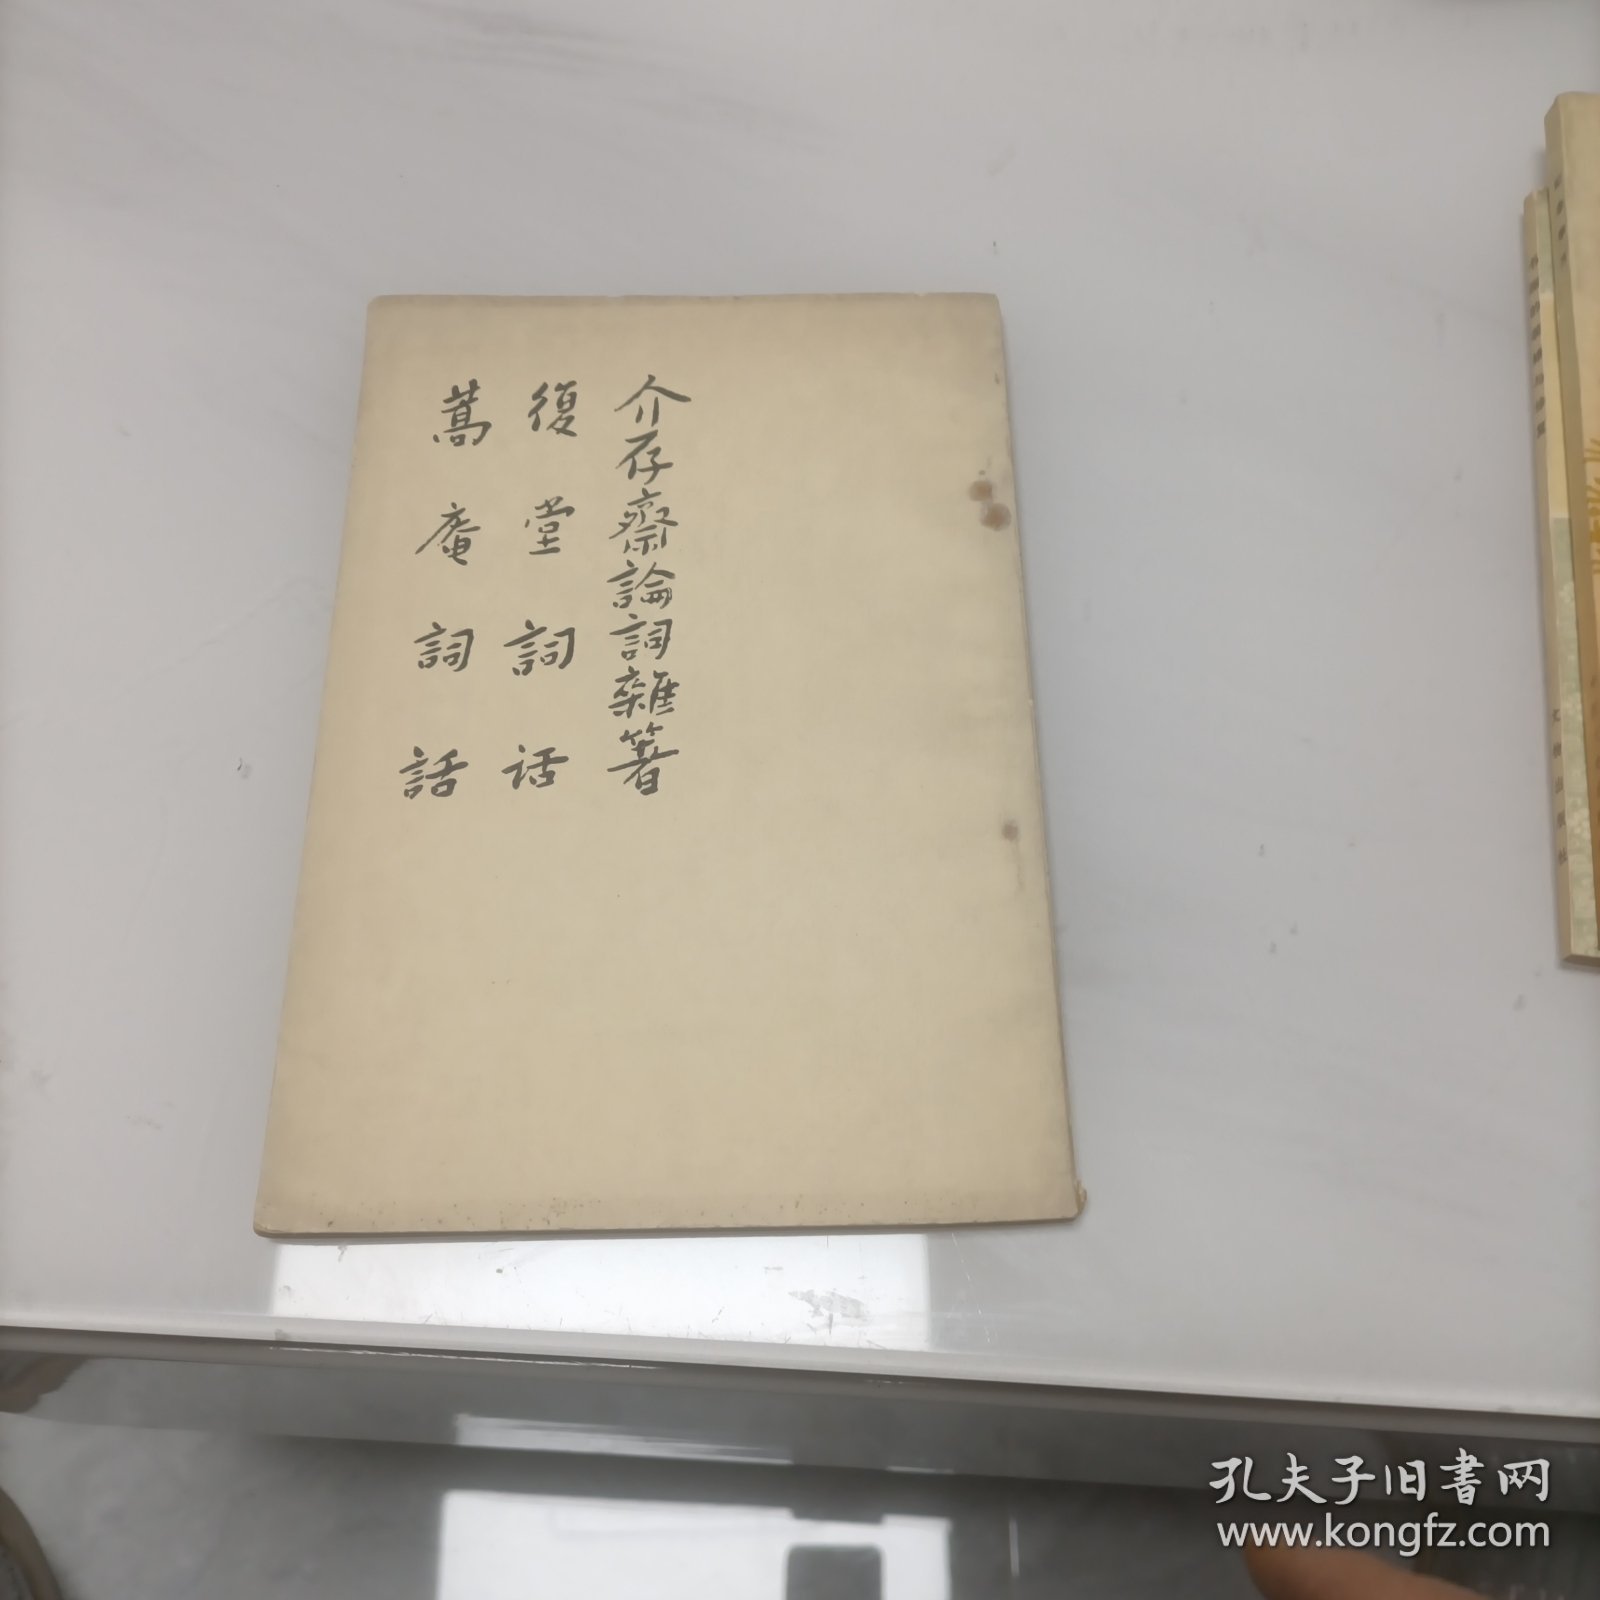 介存齋論詞雜箸
復堂詞话
蒿庵詞話
文物出版社
孔夫子旧書网
www.kongfz.com